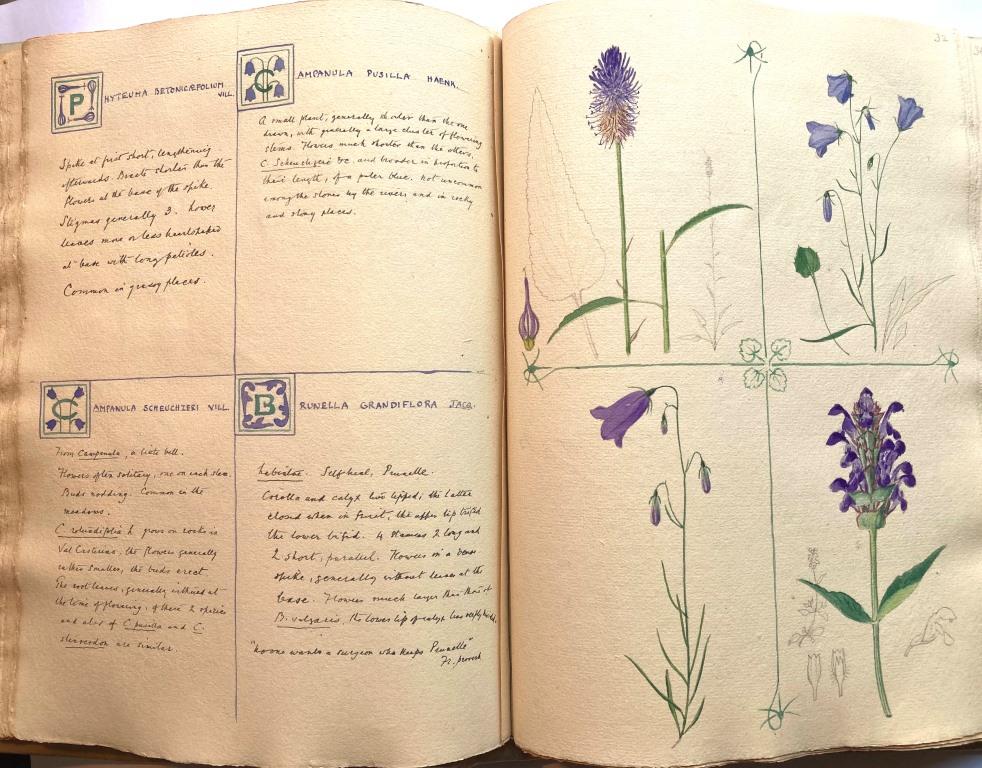 PHYTEUMA BETONICÆFOLIUM
VILL.
Spike at first short, lengthening
afterwards. Bracts shorter than the
flowers at the base of the spike.
Stigmas generally 3. Lower
leaves more or less heartshaped
at base with long petioles.
Common in grassy places.
CAMPANULA PUSILLA HAENK.
A small plant, generally shorter than the one
drawn, with generally a large cluster of flowering
stems. Flowers much shorter than the others,
C. Scheuchzeri &c. and broader in proportion to
their length, of a paler blue. Not uncommon
among the stones by the rivers, and in rocky
and stony places.
CAMPANULA SCHEUCHZERI VILL.
From Campanula, a little bell.
Flowers often solitary, one on each stem.
Buds nodding. Common in the
meadows.
C. rotundifolia L. grows on rocks in
Val Casterino, the flowers generally
rather smaller, the buds erect.
The root leaves, generally withered at
the time of flowering, of these 2 species
and also of C. pusilla and C.
are similar.
BRUNELLA GRANDIFLORA JACQ.
Labiatae. Selfheal, Prunelle.
Corolla and calyx two lipped, the latter
closed when in fruit, the upper lip trifid
the lower bifid. 4 stamens 2 long and
2 short, parallel. Flowers in a dense
spike, generally without leaves at the
base. Flowers much larger than those of
B. vulgaris, the lower lip of calyx less deeply
"No one wants a surgeon who keeps Prunelle"
Fr. proverb
32